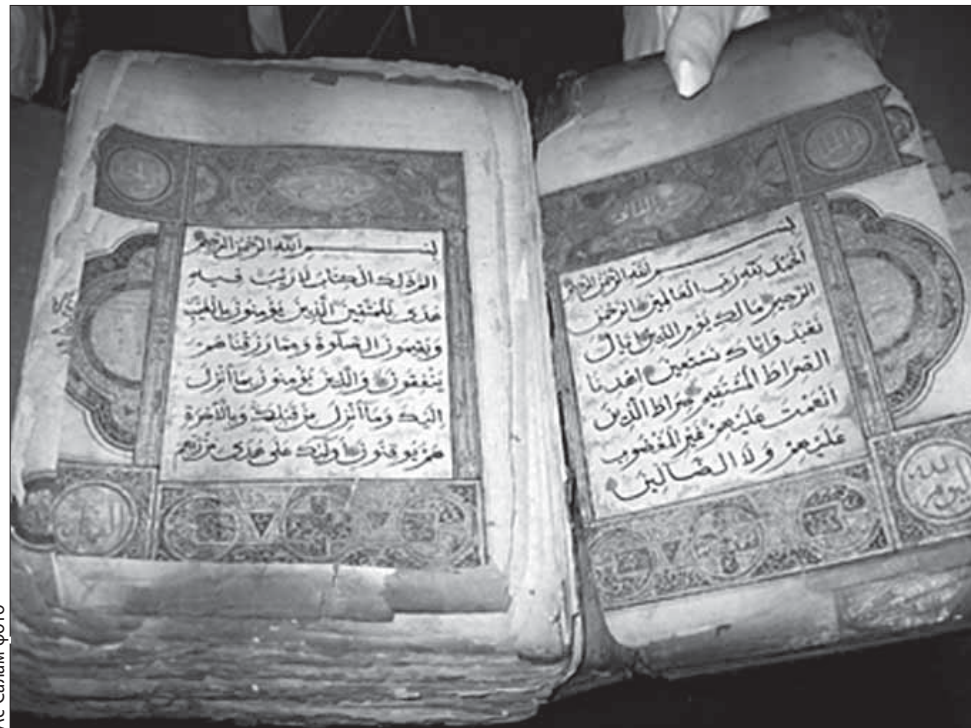 بسم الله الرحمن الرحيم
الحمد لله رب العالمين الرحمن
الرحيم مالك يوم الدين اياك
نعبد واياك نستعين اهدنا
الصراط المستقيم صراط الذين
انعمت عليهم غير المغضوب
عليهم ولا الضالين
بسم الله الرحمن الرحيم
الم ذلك الكتاب لا ريب فيه
هدى للمتقين الذين يؤمنون بالغيب
ويقيمون الصلوة ومما رزقناهم
ينفقون والذين يؤمنون بما انزل
اليك وما انزل من قبلك وبالاخرة
هم يوقنون اولئك على هدى من ربهم
Ас-Салам фото